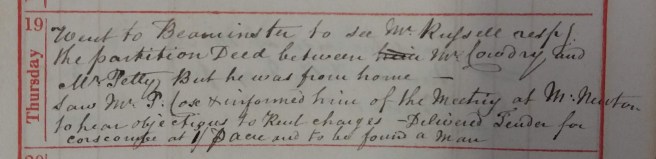 19
Thursday
Went to Beaminster to see Mr. Russell resp.
the partition Deed between Mr. Cowdry and
Mr Petty But he was from home —
Saw Mr. P. Cox & informed him of the Meeting at Mr. Newton
to hear objections to Rent charges – Delivered Tender for
corscombe at 1/ acre and to be found a man